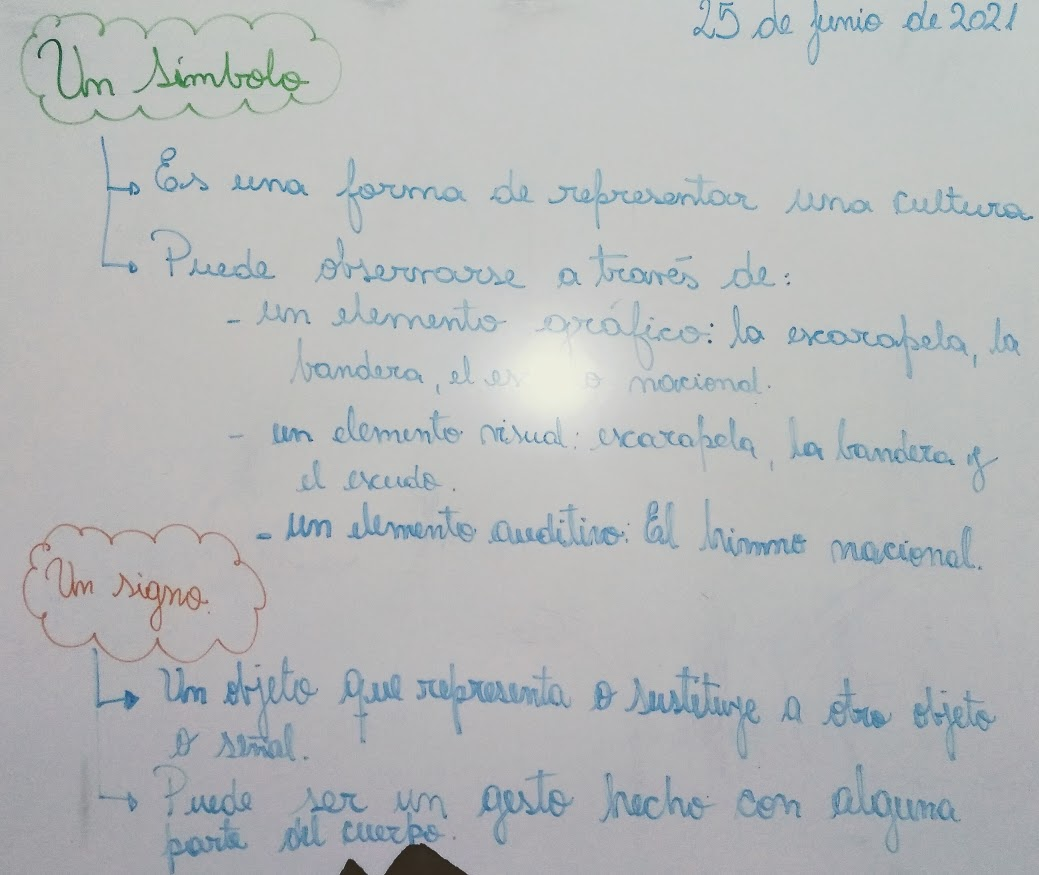 25 de junio de 2021
Un símbolo
Es una forma de representar una cultura
Puede observarse a través de:
- un elemento gráfico: la escarapela, la
bandera, el nacional.
- un elemento visual: escarapela, la bandera y
el escudo.
- un elemento auditivo: El himno nacional.
Un signo.
Un objeto que representa o sustituye a otro objeto
o señal.
Puede ser un gesto hecho con alguna
parte del cuerpo.